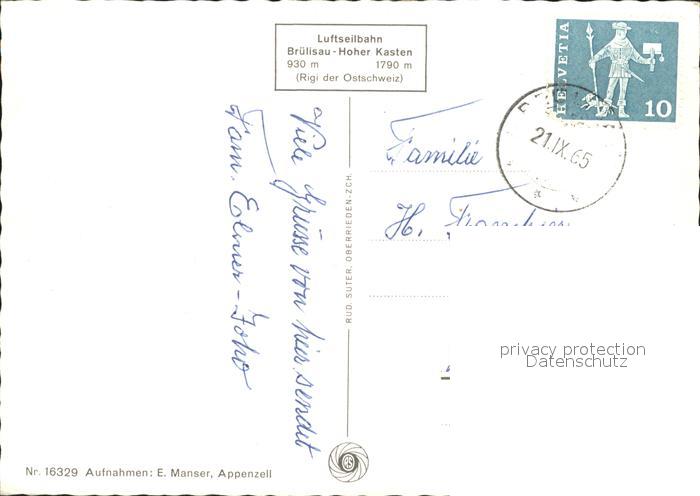 Luftseilbahn
Brülisau-Hoher Kasten
930 m 1790 m
(Rigi der Ostschweiz)
HELVETIA
10
21.IX.65
Viele Grüsse von hier sendet
Fam.
Familie
H.
RUD. SUTER, OBERRIEDEN-ZCH.
privacy protection
Datenschutz
Nr. 16329 Aufnahmen: E. Manser, Appenzell